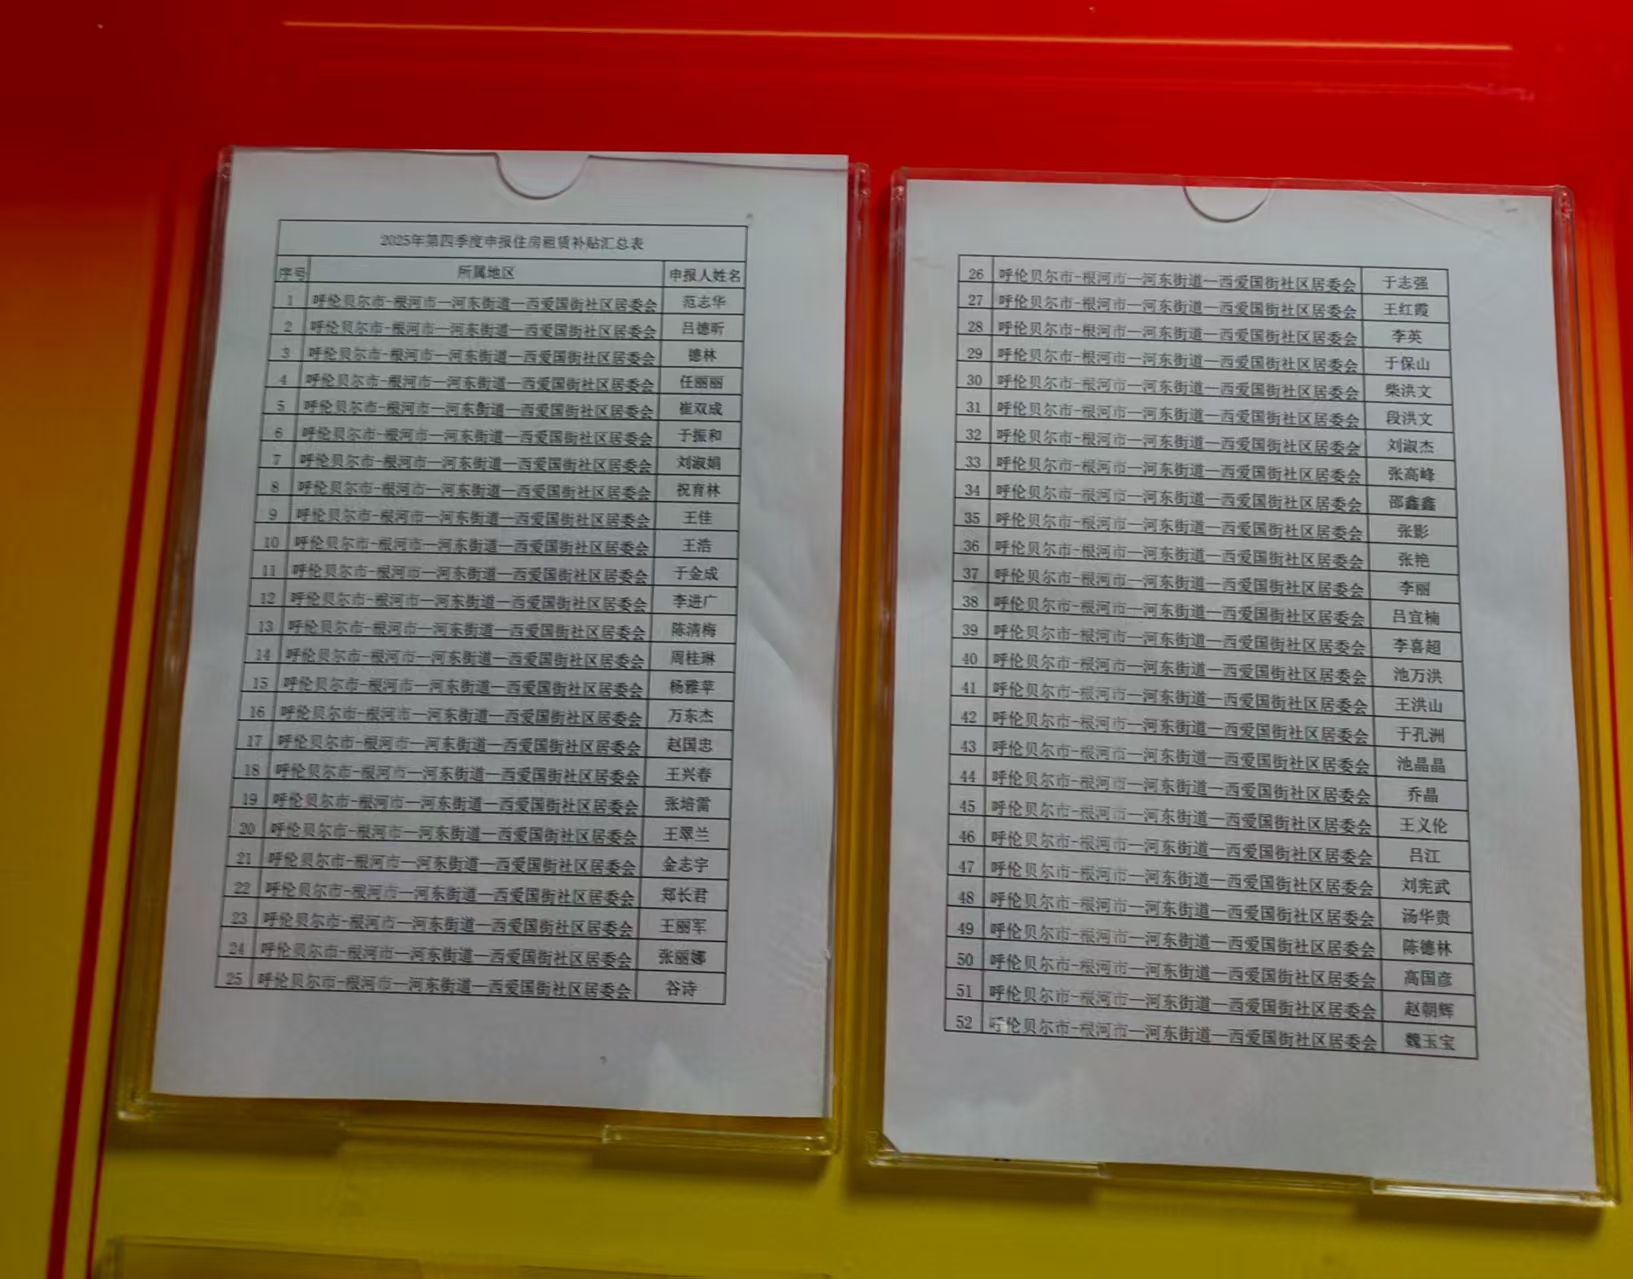 2025年第四季度申报住房租赁补贴汇总表
序号 所属地区 申报人姓名
1 呼伦贝尔市-根河市—河东街道—西爱国街社区居委会 范志华
2 呼伦贝尔市-根河市—河东街道—西爱国街社区居委会 吕德昕
3 呼伦贝尔市-根河市—河东街道—西爱国街社区居委会 德林
4 呼伦贝尔市-根河市—河东街道—西爱国街社区居委会 任丽丽
5 呼伦贝尔市-根河市—河东街道—西爱国街社区居委会 崔双成
6 呼伦贝尔市-根河市—河东街道—西爱国街社区居委会 于振和
7 呼伦贝尔市-根河市—河东街道—西爱国街社区居委会 刘淑娟
8 呼伦贝尔市-根河市—河东街道—西爱国街社区居委会 祝育林
9 呼伦贝尔市-根河市—河东街道—西爱国街社区居委会 王佳
10 呼伦贝尔市-根河市—河东街道—西爱国街社区居委会 王浩
11 呼伦贝尔市-根河市—河东街道—西爱国街社区居委会 于金成
12 呼伦贝尔市-根河市—河东街道—西爱国街社区居委会 李进广
13 呼伦贝尔市-根河市—河东街道—西爱国街社区居委会 陈清梅
14 呼伦贝尔市-根河市—河东街道—西爱国街社区居委会 周桂琳
15 呼伦贝尔市-根河市—河东街道—西爱国街社区居委会 杨雅苹
16 呼伦贝尔市-根河市—河东街道—西爱国街社区居委会 万东杰
17 呼伦贝尔市-根河市—河东街道—西爱国街社区居委会 赵国忠
18 呼伦贝尔市-根河市—河东街道—西爱国街社区居委会 王兴春
19 呼伦贝尔市-根河市—河东街道—西爱国街社区居委会 张培雷
20 呼伦贝尔市-根河市—河东街道—西爱国街社区居委会 王翠兰
21 呼伦贝尔市-根河市—河东街道—西爱国街社区居委会 金志宇
22 呼伦贝尔市-根河市—河东街道—西爱国街社区居委会 郑长君
23 呼伦贝尔市-根河市—河东街道—西爱国街社区居委会 王丽军
24 呼伦贝尔市-根河市—河东街道—西爱国街社区居委会 张丽娜
25 呼伦贝尔市-根河市—河东街道—西爱国街社区居委会 谷诗
26 呼伦贝尔市-根河市—河东街道—西爱国街社区居委会 于志强
27 呼伦贝尔市-根河市—河东街道—西爱国街社区居委会 王红霞
28 呼伦贝尔市-根河市—河东街道—西爱国街社区居委会 李英
29 呼伦贝尔市-根河市—河东街道—西爱国街社区居委会 于保山
30 呼伦贝尔市-根河市—河东街道—西爱国街社区居委会 柴洪文
31 呼伦贝尔市-根河市—河东街道—西爱国街社区居委会 段洪文
32 呼伦贝尔市-根河市—河东街道—西爱国街社区居委会 刘淑杰
33 呼伦贝尔市-根河市—河东街道—西爱国街社区居委会 张高峰
34 呼伦贝尔市-根河市—河东街道—西爱国街社区居委会 邵鑫鑫
35 呼伦贝尔市-根河市—河东街道—西爱国街社区居委会 张影
36 呼伦贝尔市-根河市—河东街道—西爱国街社区居委会 张艳
37 呼伦贝尔市-根河市—河东街道—西爱国街社区居委会 李丽
38 呼伦贝尔市-根河市—河东街道—西爱国街社区居委会 吕宜楠
39 呼伦贝尔市-根河市—河东街道—西爱国街社区居委会 李喜超
40 呼伦贝尔市-根河市—河东街道—西爱国街社区居委会 池万洪
41 呼伦贝尔市-根河市—河东街道—西爱国街社区居委会 王洪山
42 呼伦贝尔市-根河市—河东街道—西爱国街社区居委会 于孔洲
43 呼伦贝尔市-根河市—河东街道—西爱国街社区居委会 池晶晶
44 呼伦贝尔市-根河市—河东街道—西爱国街社区居委会 乔晶
45 呼伦贝尔市-根河市—河东街道—西爱国街社区居委会 王义伦
46 呼伦贝尔市-根河市—河东街道—西爱国街社区居委会 吕江
47 呼伦贝尔市-根河市—河东街道—西爱国街社区居委会 刘宪武
48 呼伦贝尔市-根河市—河东街道—西爱国街社区居委会 汤华贵
49 呼伦贝尔市-根河市—河东街道—西爱国街社区居委会 陈德林
50 呼伦贝尔市-根河市—河东街道—西爱国街社区居委会 高国彦
51 呼伦贝尔市-根河市—河东街道—西爱国街社区居委会 赵朝辉
52 呼伦贝尔市-根河市—河东街道—西爱国街社区居委会 魏玉宝